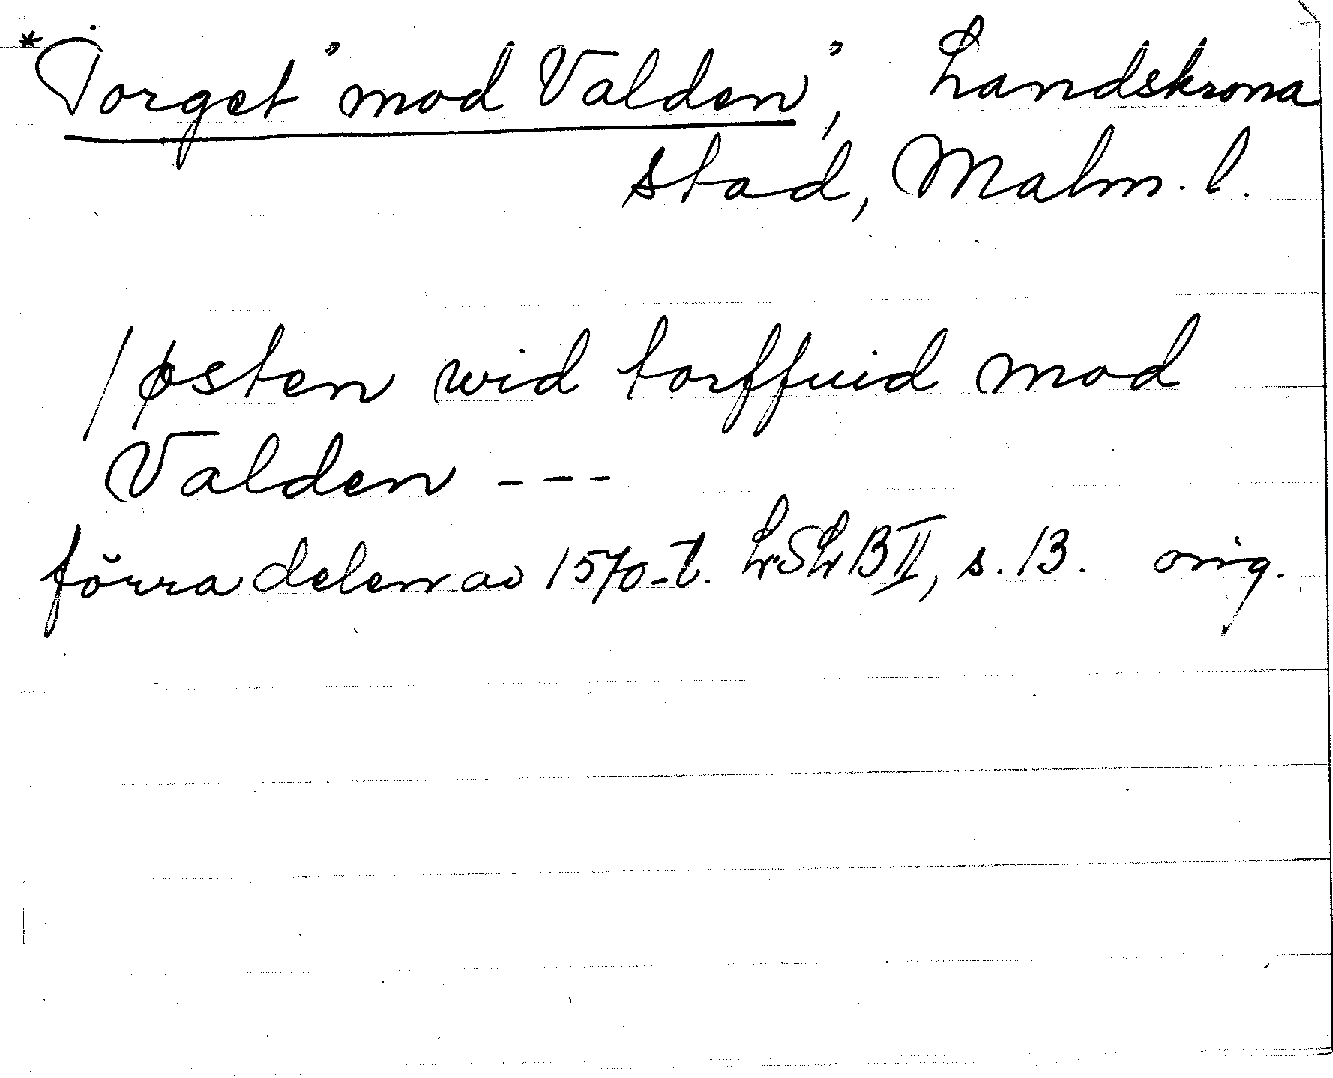 *Torget "mod Valden", Landskrona
stad, Malm. l.
/østen wid torffuid mod
Valden ---
förra delen av 1570-t. LrSLrB II, s. 13. orig.